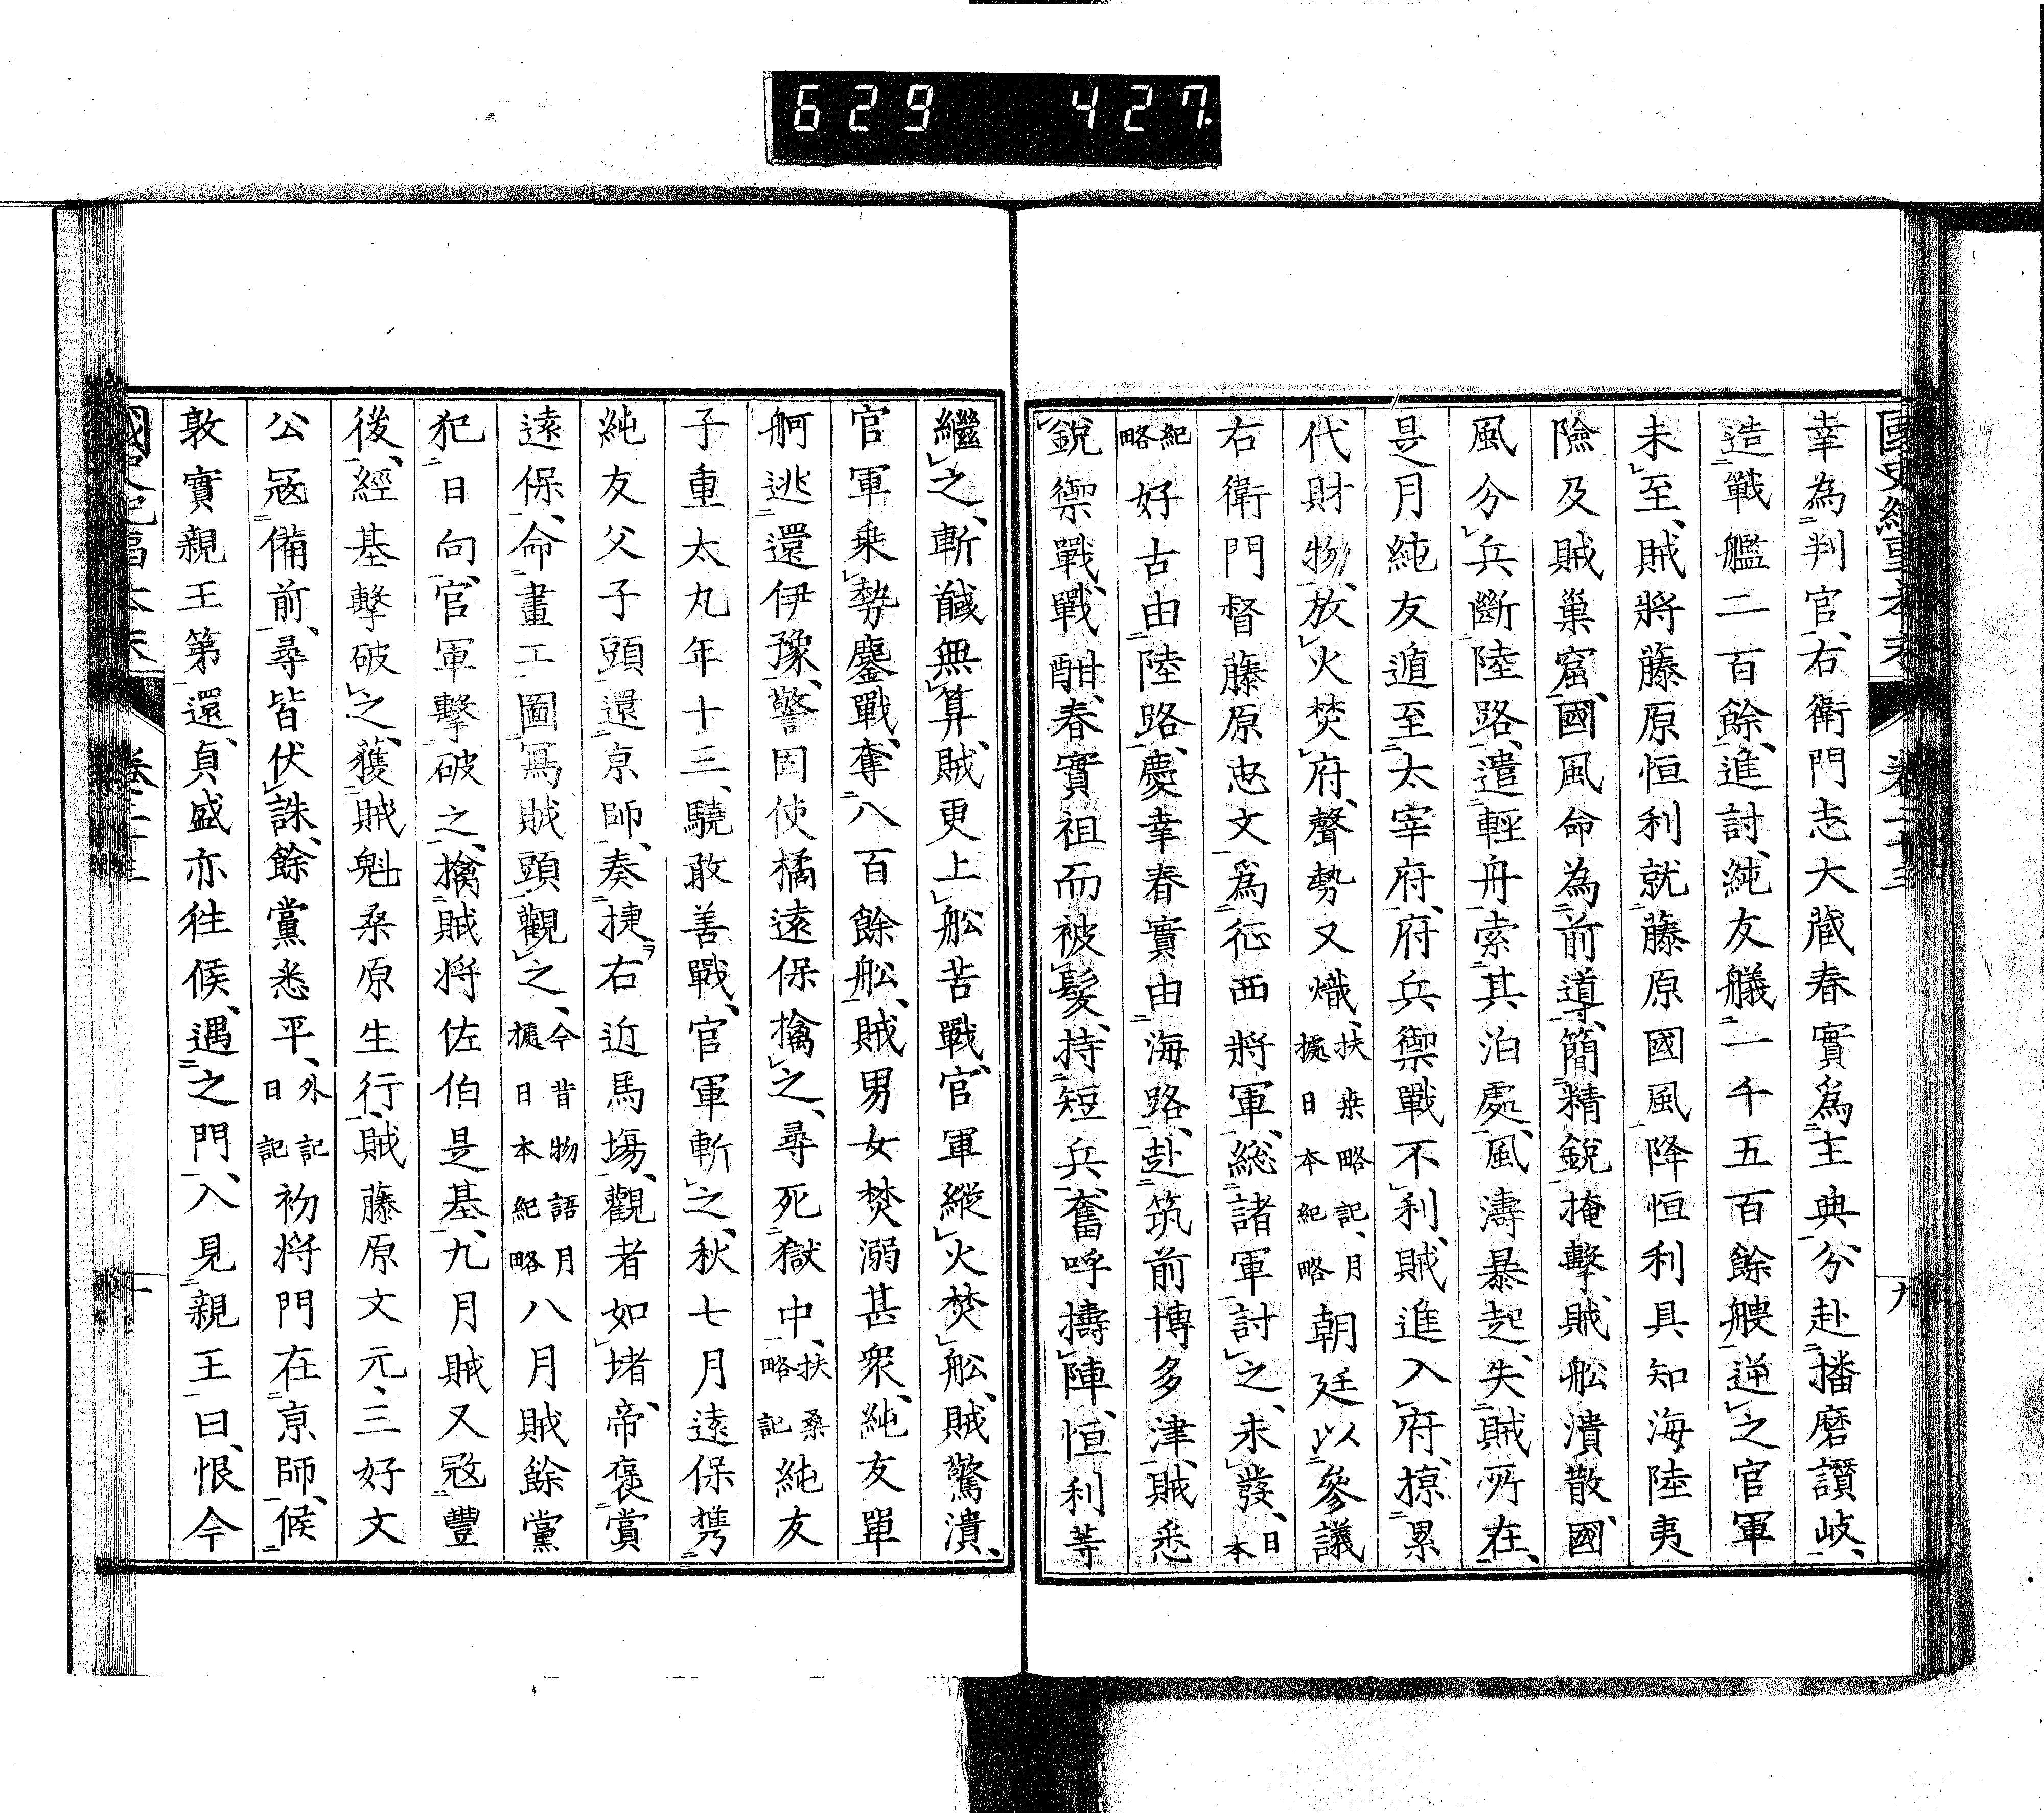 629 427.
幸為判官、右衛門志大藏春實爲主典、分赴播磨讃岐、
造戰艦二百餘、進討、純友艤一千五百餘艘逆之官軍
未至、賊將藤原恒利就藤原國風降恒利具知海陸夷
險及賊巢窟、國風命為前導、簡精鋭掩擊賊、賊舩潰散、國
風分兵斷陸路、遣輕舟索其泊處、風濤暴起、失賊所在、
是月純友遁至太宰府、府兵禦戰不利、賊進入府、掠累
代財物、放火焚府、聲勢又熾、扶桒略記、月據日本紀略朝廷以參議
右衛門督藤原忠文爲征西將軍、総諸軍討之、未發、日本
紀略好古由陸路、慶幸春實由海路、赴筑前博多津、賊悉
鋭禦戰、戰酣、春實袒而被髮、持短兵、奮呼擣陣、恒利等
繼之、斬馘無算、賊更上舩苦戰、官軍縱火焚舩、賊驚潰、
官軍乘勢鏖戰、奪八百餘舩、賊男女焚溺甚衆、純友單
舸逃還伊豫、警固使橘遠保擒之、尋死獄中、扶桑略記純友
子重太丸年十三、驍敢善戰、官軍斬之、秋七月遠保携
純友父子頭還京師、奏捷ヲ右近馬塲、觀者如堵、帝褒賞
遠保、命畫工圖寫賊頭觀之、今昔物語月據日本紀略八月賊餘黨
犯日向、官軍擊破之、擒賊将佐伯是基、九月賊又寇豐
後、經基擊破之、獲賊魁桑原生行、賊藤原文元、三好文
公寇備前、尋皆伏誅、餘黨悉平、外記日記初将門在京師、候
敦實親王第還、貞盛亦往候、遇之門、入見親王曰、恨今